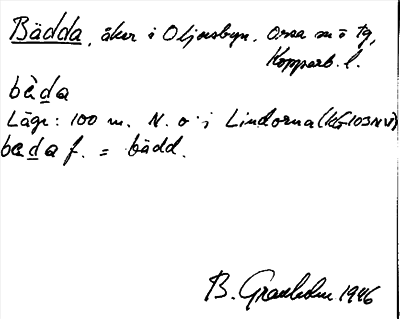 Bädda, åker i Oljonsbyn, Orsa sn o tg,
Kopparb. l.
bèda
Läge: 100 m. N. o i Lindorna (KG 103 NV)
bèda f. = bädd.
B. Granholm 1946